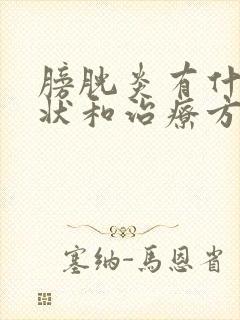 膀胱炎有什
状和治療方
塞纳-馬恩省